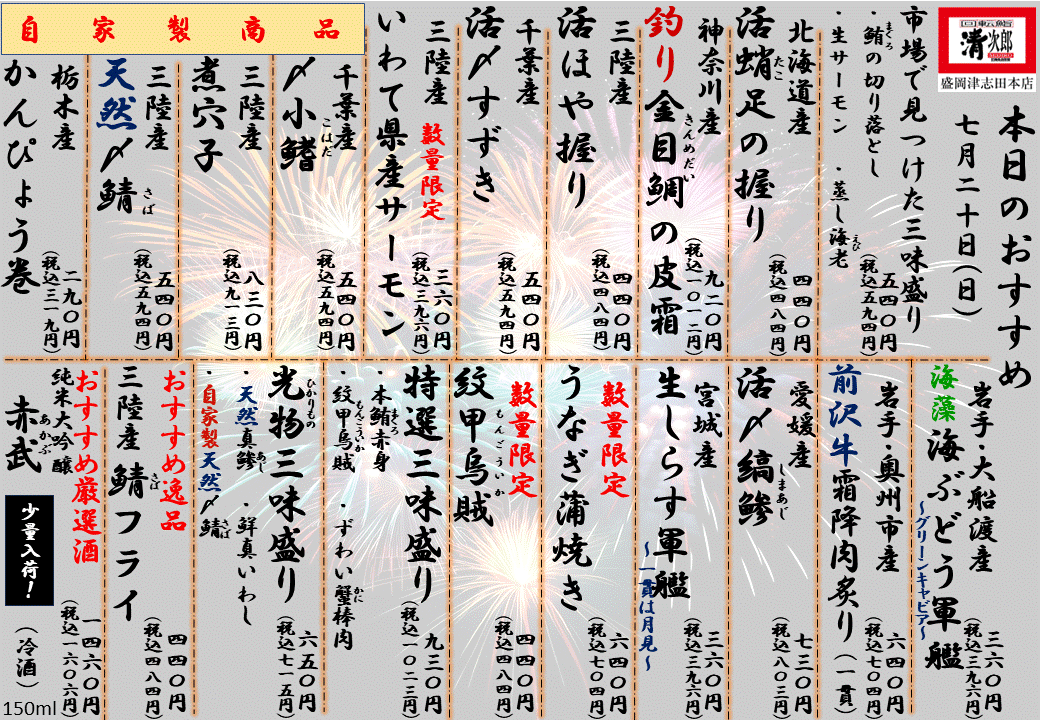 回転鮨
清次郎
盛岡津志田本店
本日のおすすめ
七月二十日(日)
市場で見つけた三味盛り
・鮪の切り落とし
まぐろ
・生サーモン ・蒸し海老
えび
五四〇円
(税込五九四円)
北海道産
活蛸足の握り
たこ
四四〇円
(税込四八四円)
神奈川産
釣り金目鯛の皮霜
きんめだい
九二〇円
(税込一〇一二円)
三陸産
活ほや握り
四四〇円
(税込四八四円)
千葉産
活〆すずき
五四〇円
(税込五九四円)
三陸産
数量限定
いわて県産サーモン
三六〇円
(税込三九六円)
自家製商品
千葉産
〆小鰭
こはだ
五四〇円
(税込五九四円)
三陸産
煮穴子
八三〇円
(税込九一三円)
三陸産
天然〆鯖
さば
五四〇円
(税込五九四円)
栃木産
かんぴょう巻
二九〇円
(税込三一九円)
岩手・大船渡産
海藻海ぶどう軍艦
~グリーンキャビア~
三六〇円
(税込三九六円)
岩手・奥州市産
前沢牛霜降肉炙り(一貫)
六四〇円
(税込七〇四円)
愛媛産
活〆縞鯵
しまあじ
七三〇円
(税込八〇三円)
宮城産
生しらす軍艦
~一貫は月見~
三六〇円
(税込三九六円)
数量限定
うなぎ蒲焼き
六四〇円
(税込七〇四円)
数量限定
紋甲烏賊
もんごういか
四四〇円
(税込四八四円)
特選三味盛り
・本鮪赤身
まぐろ
・紋甲烏賊 ・ずわい蟹棒肉
もんごういか
かに
九三〇円
(税込一〇二三円)
光物三味盛り
ひかりもの
・天然真鯵 ・鮮真いわし
あじ
・自家製天然〆鯖
さば
六五〇円
(税込七一五円)
おすすめ逸品
三陸産 鯖フライ
さば
四四〇円
(税込四八四円)
おすすめ厳選酒
純米大吟醸
赤武
あかぶ
少量入荷!
一四六〇円
(税込一六〇六円)
(冷酒)
150ml